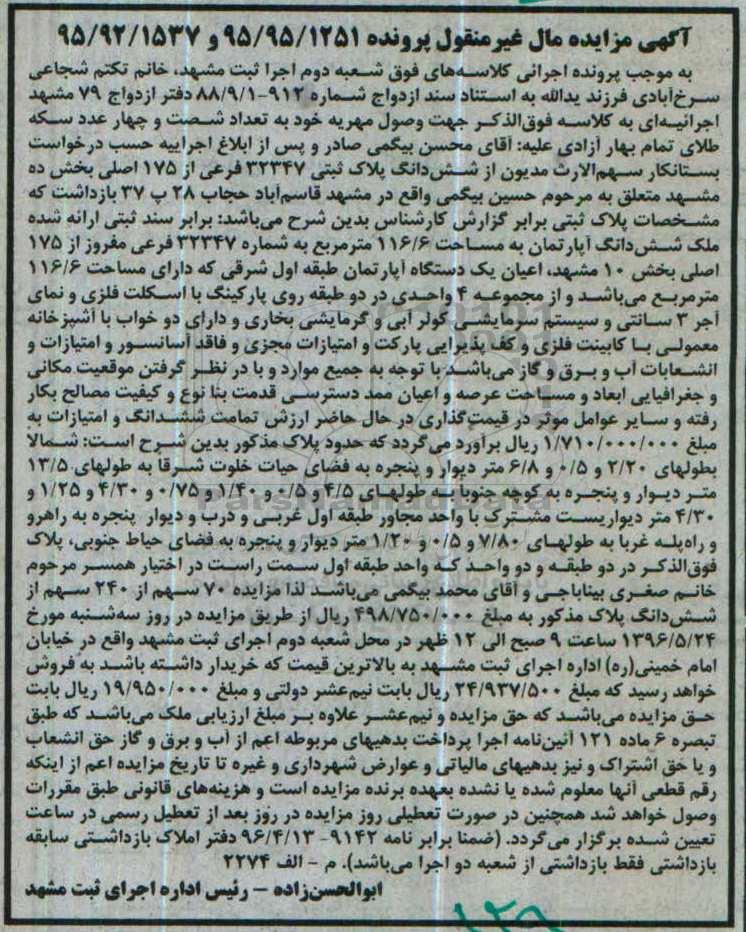 آگهی مزایده مال غیرمنقول پرونده ۹۵/۹۵/۱۲۵۱ و ۹۵/۹۲/۱۵۳۷
به موجب پرونده اجرائی کلاسه‌های فوق شعبه دوم اجرا ثبت مشهد، خانم تکتم شجاعی
سرخ‌آبادی فرزند یدالله به استناد سند ازدواج شماره ۹۱۲-۸۸/۹/۱ دفتر ازدواج ۷۹ مشهد
اجرائیه‌ای به کلاسه فوق‌الذکر جهت وصول مهریه خود به تعداد شصت و چهار عدد سکه
طلای تمام بهار آزادی علیه: آقای محسن بیگمی صادر و پس از ابلاغ اجراییه حسب درخواست
بستانکار سهم‌الارث مدیون از شش‌دانگ پلاک ثبتی ۳۲۳۴۷ فرعی از ۱۷۵ اصلی بخش ده
مشهد متعلق به مرحوم حسین بیگمی واقع در مشهد قاسم‌آباد حجاب ۲۸ پ ۳۷ بازداشت که
مشخصات پلاک ثبتی برابر گزارش کارشناس بدین شرح می‌باشد: برابر سند ثبتی ارائه شده
ملک شش‌دانگ آپارتمان به مساحت ۱۱۶/۶ مترمربع به شماره ۳۲۳۴۷ فرعی مفروز از ۱۷۵
اصلی بخش ۱۰ مشهد، اعیان یک دستگاه آپارتمان طبقه اول شرقی که دارای مساحت ۱۱۶/۶
مترمربع می‌باشد و از مجموعه ۴ واحدی در دو طبقه روی پارکینگ با اسکلت فلزی و نمای
آجر ۳ سانتی و سیستم سرمایشی کولر آبی و گرمایشی بخاری و دارای دو خواب با آشپزخانه
معمولی با کابینت فلزی و کف پذیرایی پارکت و امتیازات مجزی و فاقد آسانسور و امتیازات و
انشعابات آب و برق و گاز می‌باشد با توجه به جمیع موارد و با در نظر گرفتن موقعیت مکانی
و جغرافیایی ابعاد و مساحت عرصه و اعیان ممد دسترسی قدمت بنا نوع و کیفیت مصالح بکار
رفته و سایر عوامل موثر در قیمت‌گذاری در حال حاضر ارزش تمامت ششدانگ و امتیازات به
مبلغ ۱/۷۱۰/۰۰۰/۰۰۰ ریال برآورد می‌گردد که حدود پلاک مذکور بدین شرح است: شمالا
بطولهای ۲/۲۰ و ۰/۵ و ۶/۸ متر دیوار و پنجره به فضای حیات خلوت شرقا به طولهای ۱۳/۵
متر دیوار و پنجره به کوچه جنوبا به طولهای ۴/۵ و ۰/۵ و ۱/۴۰ و ۰/۷۵ و ۴/۳۰ و ۱/۲۵ و
۴/۳۰ متر دیواریست مشترک با واحد مجاور طبقه اول غربی و درب و دیوار پنجره به راهرو
و راه‌پله غربا به طولهای ۷/۸۰ و ۰/۵ و ۱/۲۰ متر دیوار و پنجره به فضای حیاط جنوبی، پلاک
فوق‌الذکر در دو طبقه و دو واحد که واحد طبقه اول سمت راست در اختیار همسر مرحوم
خانم صغری بیناباجی و آقای محمد بیگمی می‌باشد لذا مزایده ۷۰ سهم از ۲۴۰ سهم از
شش‌دانگ پلاک مذکور به مبلغ ۴۹۸/۷۵۰/۰۰۰ ریال از طریق مزایده در روز سه‌شنبه مورخ
۱۳۹۶/۵/۲۴ ساعت ۹ صبح الی ۱۲ ظهر در محل شعبه دوم اجرای ثبت مشهد واقع در خیابان
امام خمینی(ره) اداره اجرای ثبت مشهد به بالاترین قیمت که خریدار داشته باشد به فروش
خواهد رسید که مبلغ ۲۴/۹۳۷/۵۰۰ ریال بابت نیم‌عشر دولتی و مبلغ ۱۹/۹۵۰/۰۰۰ ریال بابت
حق مزایده می‌باشد که حق مزایده و نیم‌عشر علاوه بر مبلغ ارزیابی ملک می‌باشد که طبق
تبصره ۶ ماده ۱۲۱ آئین‌نامه اجرا پرداخت بدهیهای مربوطه اعم از آب و برق و گاز حق انشعاب
و یا حق اشتراک و نیز بدهیهای مالیاتی و عوارض شهرداری و غیره تا تاریخ مزایده اعم از اینکه
رقم قطعی آنها معلوم شده یا نشده بعهده برنده مزایده است و هزینه‌های قانونی طبق مقررات
وصول خواهد شد همچنین در صورت تعطیلی روز مزایده در روز بعد از تعطیل رسمی در ساعت
تعیین شده برگزار می‌گردد. (ضمنا برابر نامه ۹۱۴۲- ۹۶/۴/۱۳ دفتر املاک بازداشتی سابقه
بازداشتی فقط بازداشتی از شعبه دو اجرا می‌باشد). م - الف ۲۲۷۴
ابوالحسن‌زاده – رئیس اداره اجرای ثبت مشهد